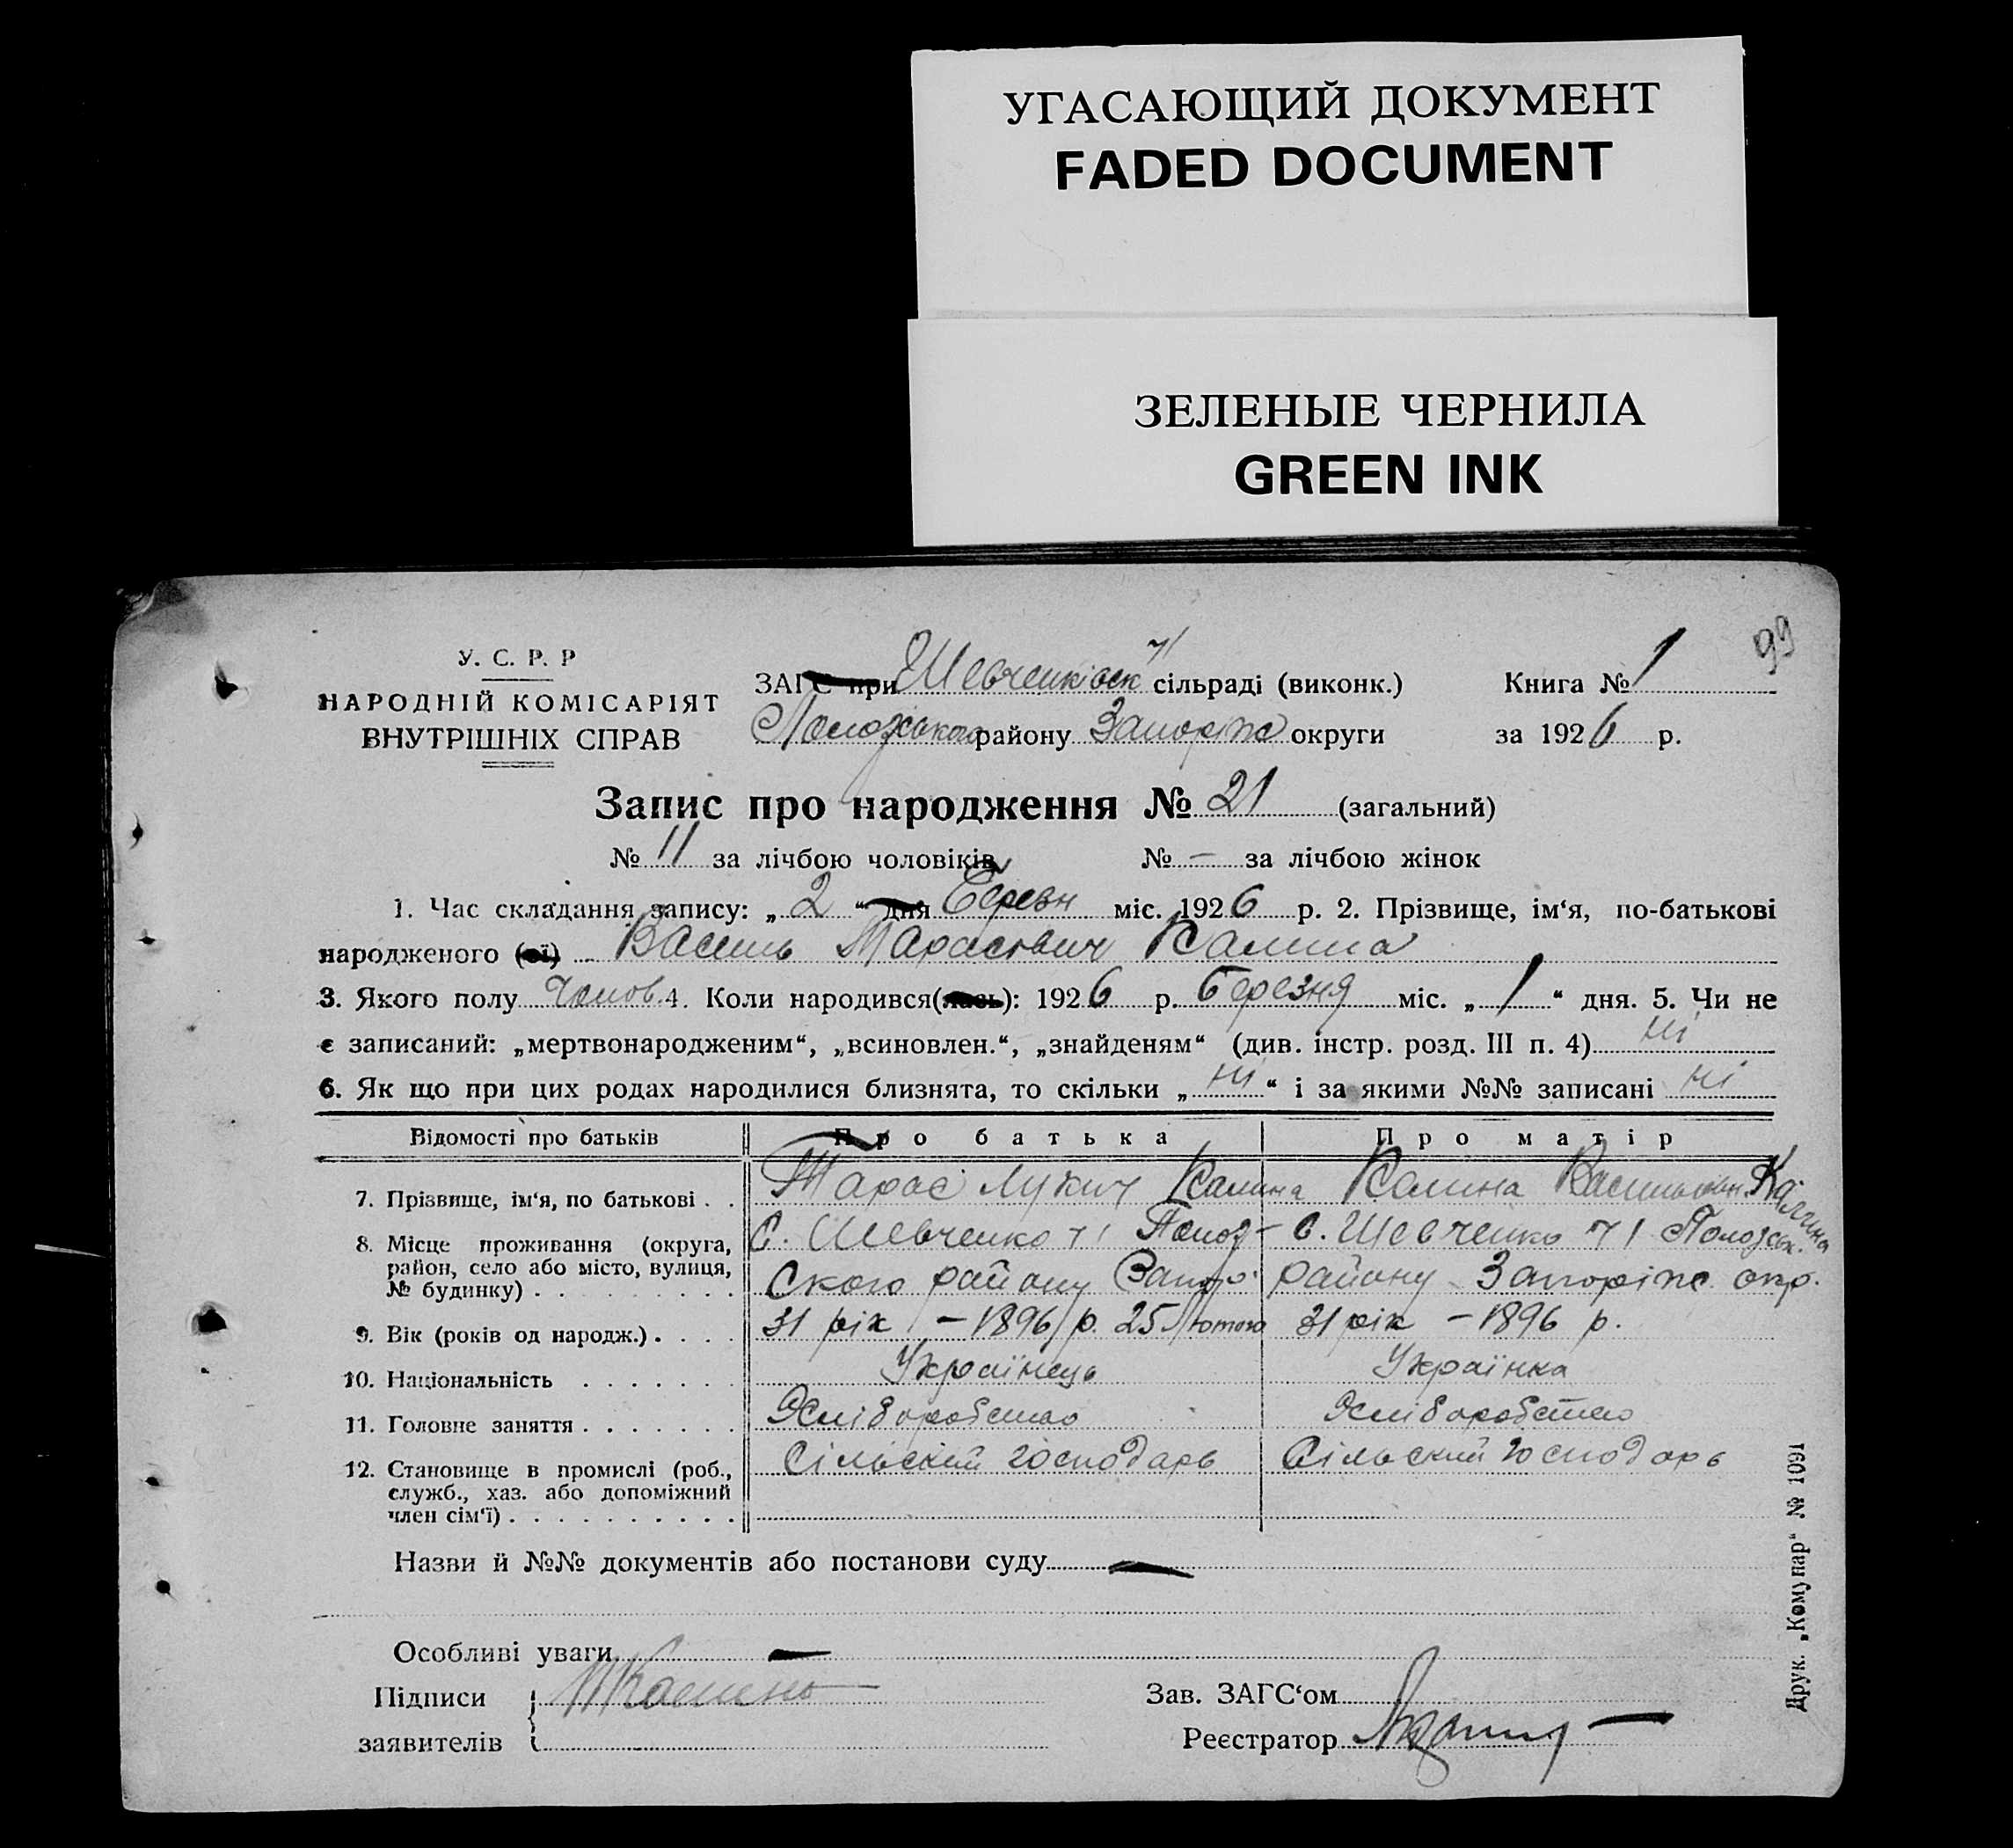 УГАСАЮЩИЙ ДОКУМЕНТ
FADED DOCUMENT
ЗЕЛЕНЫЕ ЧЕРНИЛА
GREEN INK
99
У. С. Р. Р
НАРОДНІЙ КОМІСАРІЯТ
ВНУТРІШНІХ СПРАВ
ЗАГС при Шевченківск 71 сільраді (виконк.)
Пологського району Запоріж округи
Книга № 1
за 1926 р.
Запис про народження № 21 (загальний)
№ 11 за лічбою чоловіків № – за лічбою жінок
1. Час складання запису: „ 2 “ дня Березн міс. 1926 р. 2. Прізвище, ім‘я, по-батькові
народженого (ої) Василь Тарасович Калина
3. Якого полу Чолов. 4. Коли народився(лась): 1926 р. Березня міс. „ 1 “ дня. 5. Чи не
є записаний: „мертвонародженим“, „всиновлен.“, „знайденям“ (див. інстр. розд. III п. 4) ні
6. Як що при цих родах народилися близнята, то скільки „ ні “ і за якими №№ записані ні
Відомості про батьків Про батька Про матір
7. Прізвище, ім‘я, по батькові . . Тарас Лукич Калина Калина Васильовн. Калина
8. Місце проживання (округа, С. Шевченко 71 Полог- с. Шевченко 71 Пологськ.
район, село або місто, вулиця, ского району Запор. району Запоріж. окр.
№ будинку) . . . . . . . . .
9. Вік (років од народж.) . . . . 31 рік – 1896 р. 25 Лютого 31 рік – 1896 р.
10. Національність . . . . . . . Українець Українка
11. Головне заняття . . . . . . . Хліборобство Хліборобство
12. Становище в промислі (роб., Сільский господарь Сільский господарь
служб., хаз. або допоміжний
член сім‘ї) . . . . . . . . . .
Назви й №№ документів або постанови суду —
Особливі уваги —
Підписи Т Калина
заявителів
Зав. ЗАГС‘ом
Реєстратор
Друк. „Комунар“ № 1091